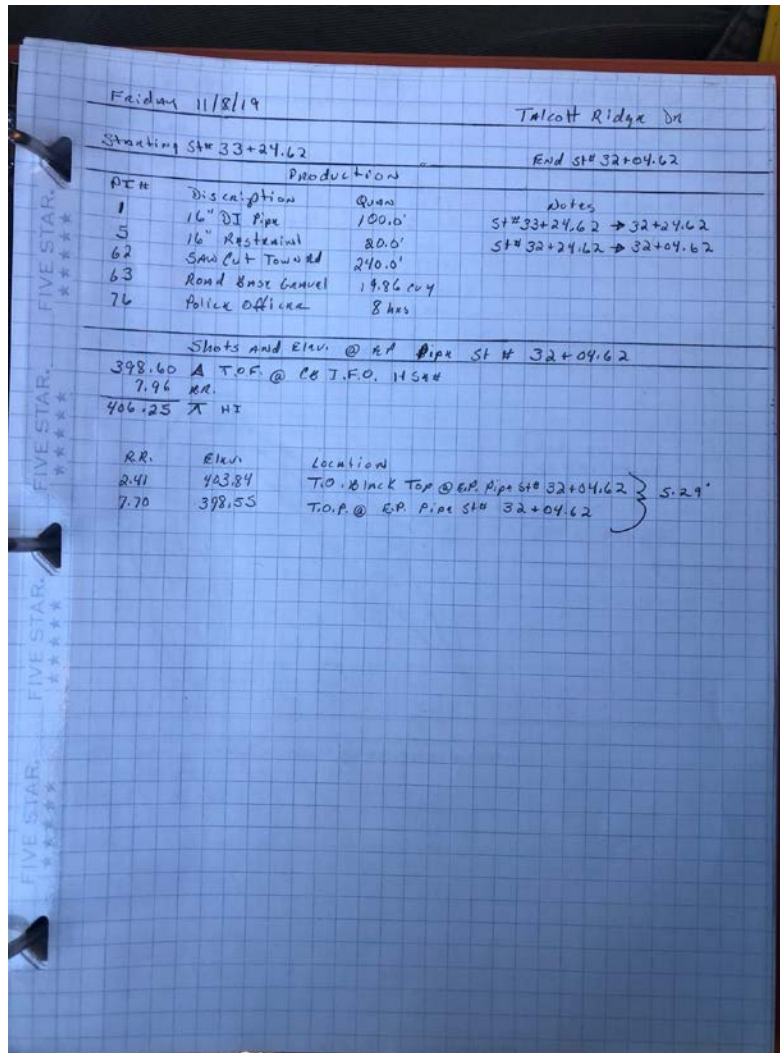 Friday 11/8/19 Talcott Ridge Dr
Starting St# 33+24.62 End St# 32+04.62
Production
PI# Discription Quan Notes
1 16" DI Pipe 100.0' St#33+24.62 → 32+24.62
5 16" Restraint 20.0' St#32+24.62 → 32+04.62
62 Saw Cut Town Rd 240.0'
63 Road Base Gravel 19.86 cuy
76 Police Officer 8 hrs
Shots and Elev. @ Pipe St # 32+04.62
398.60 T.O.F. @ CB I.F.O. HS##
7.96 RR.
406.25 HI
R.R. Elev. Location
2.41 403.84 T.O. Black Top @ E.P. Pipe St# 32+04.62
7.70 398.55 T.O.P. @ E.P. Pipe St# 32+04.62
5.29'
FIVE STAR.
FIVE STAR.
FIVE STAR.
FIVE STAR.